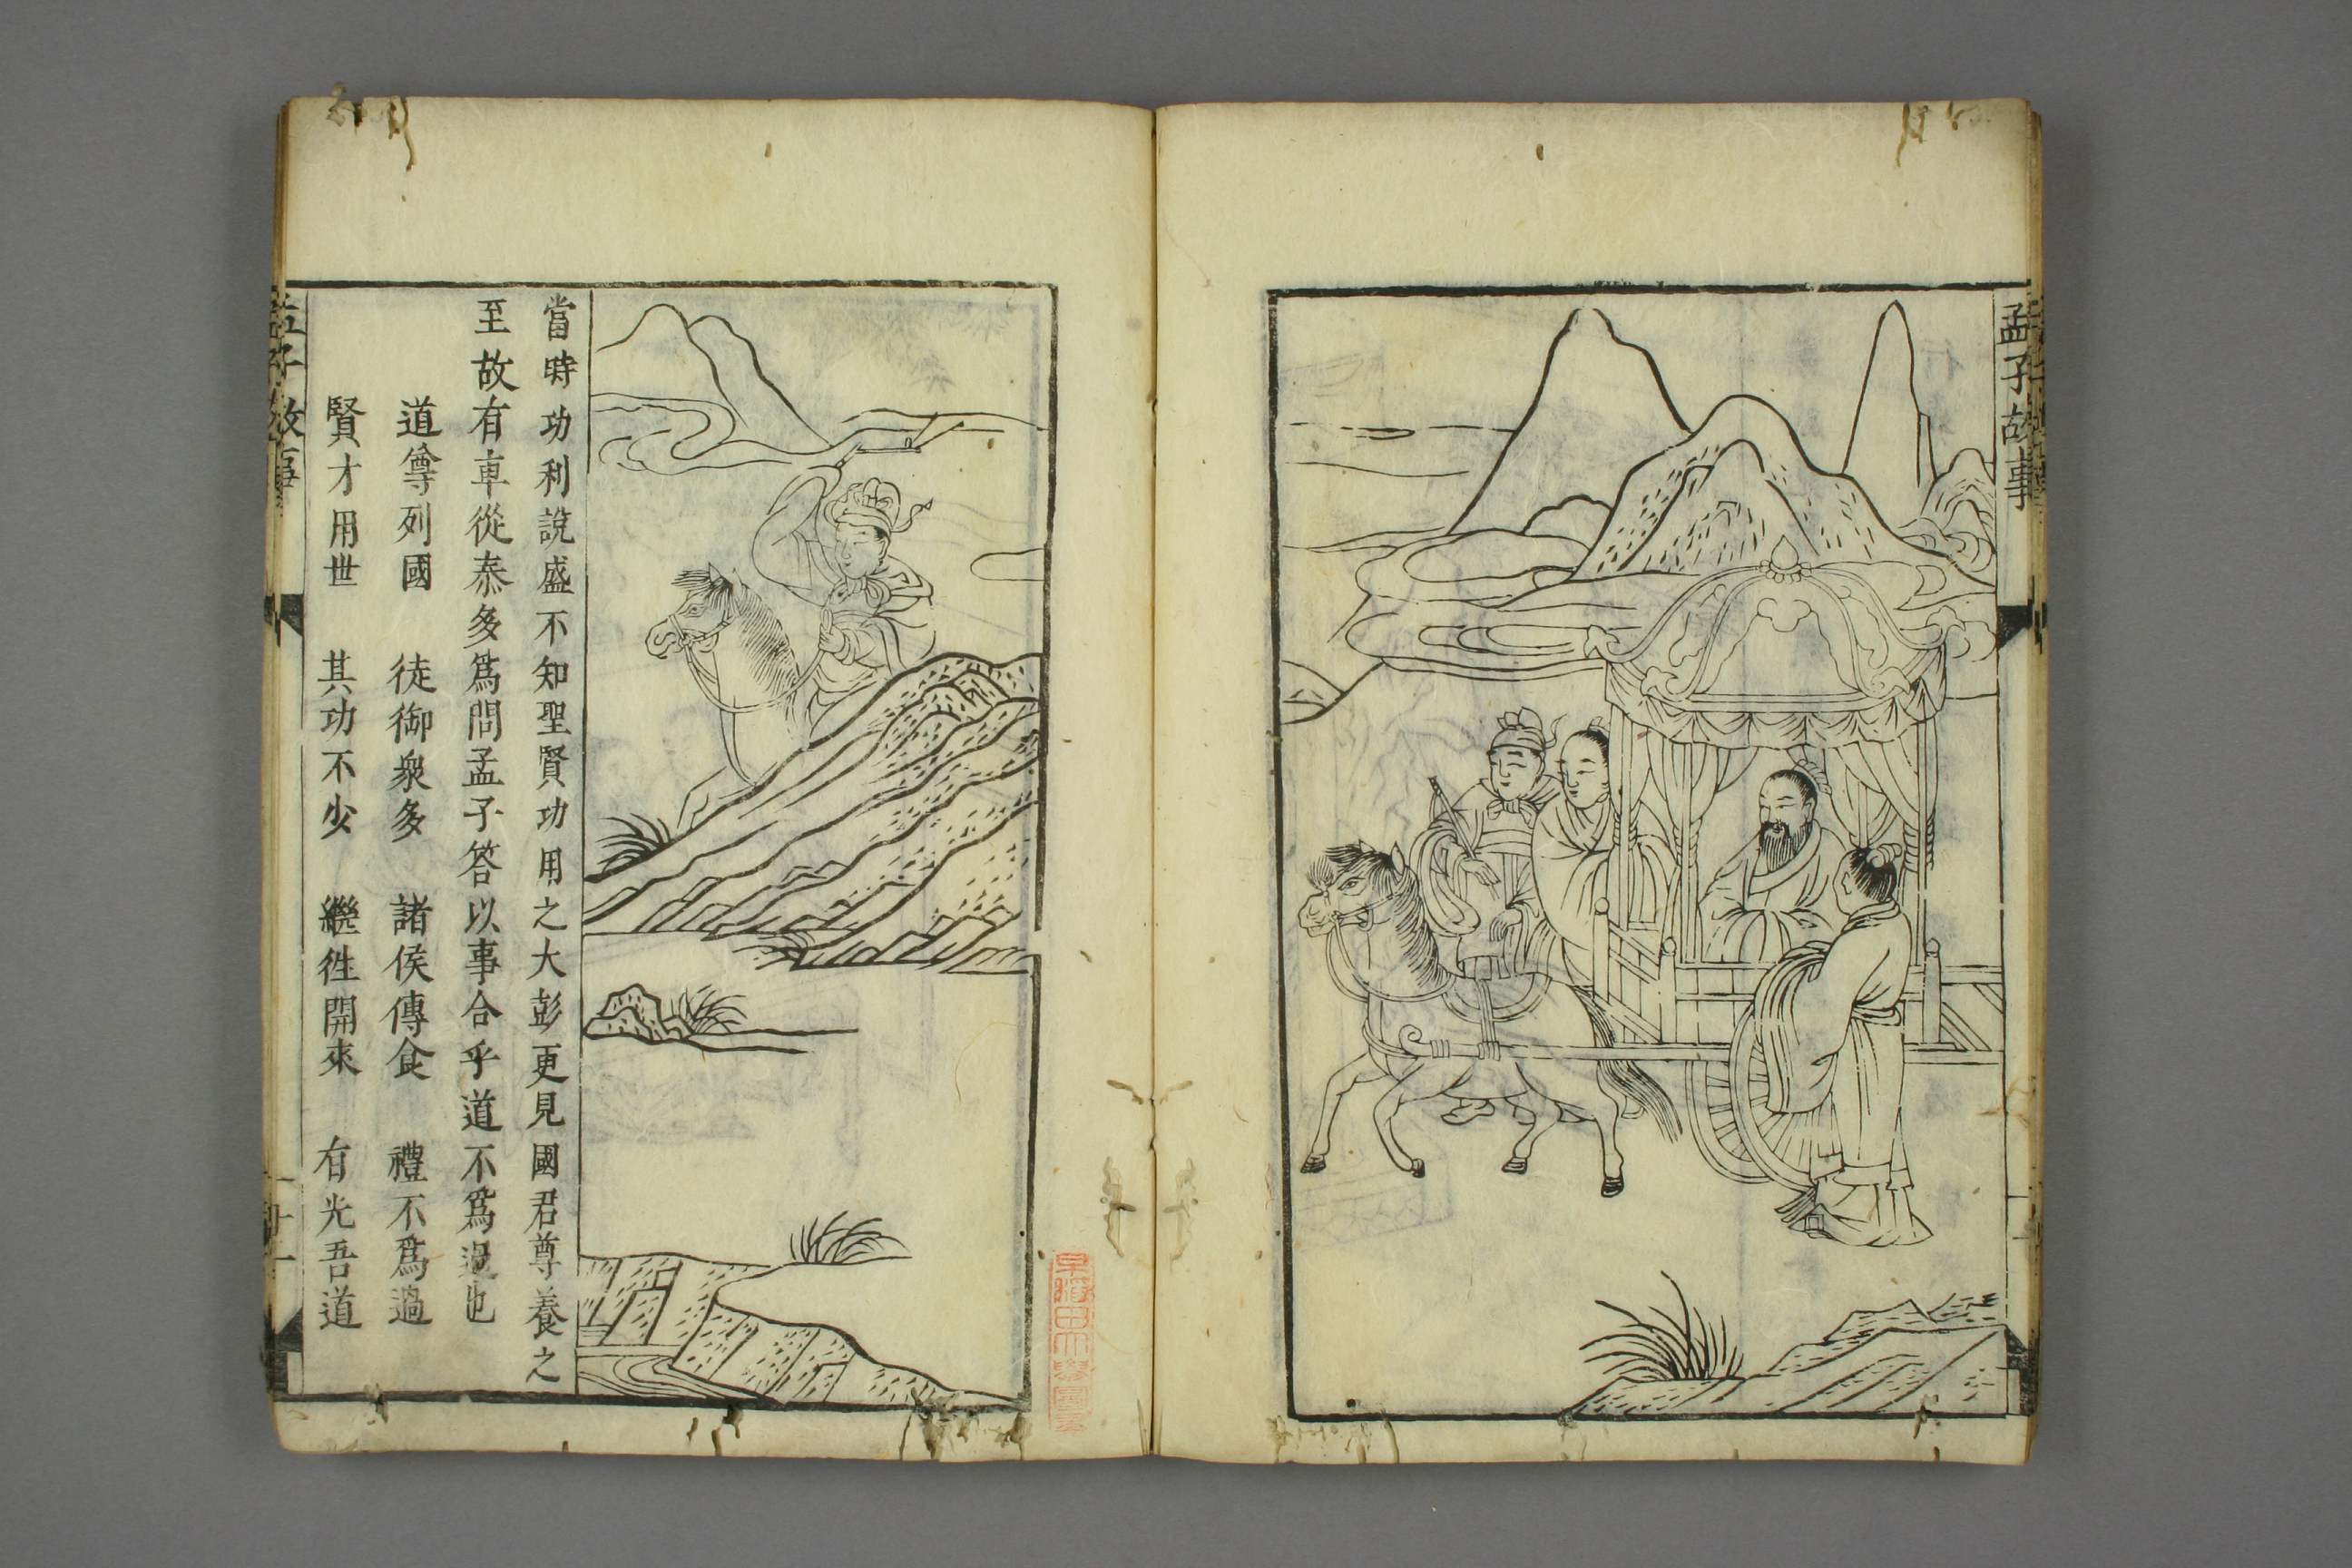 孟子故事
當時功利說盛不知聖賢功用之大彭更見國君尊養之
至故有車從泰多爲問孟子答以事合乎道不爲過也
道尊列國　徒御衆多　諸侯傳食　禮不爲過
賢才用世　其功不少　繼徃開來　有光吾道
孟子故事
早稻田大學圖書